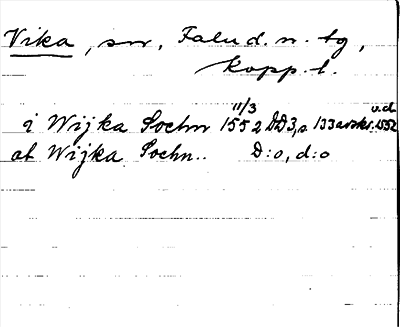 Vika, sn, Falu d. n. tg,
Kopp. l.
i Wijka Sochn 11/3 1552 DD3, s. 133 avskr. o.d. 1552
af Wijka Sochn.. D:o, d:o